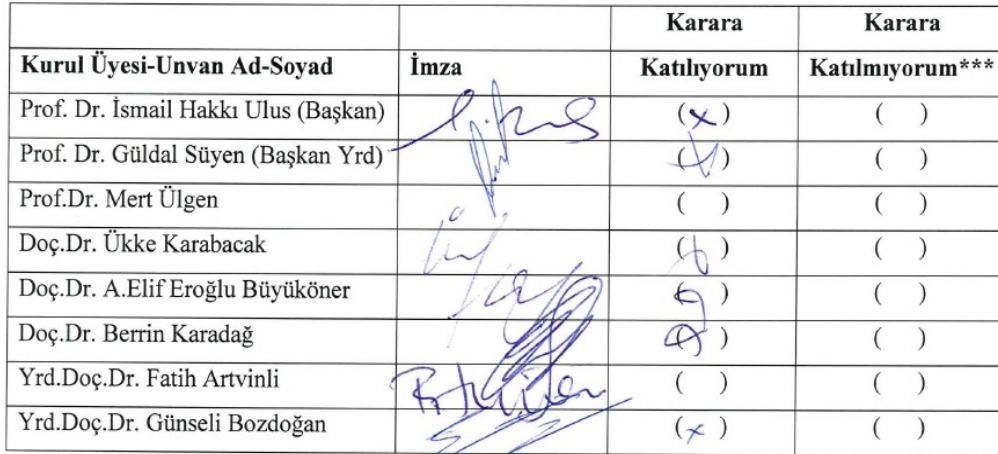 Karara Karara
Kurul Üyesi-Unvan Ad-Soyad İmza Katılıyorum Katılmıyorum***
Prof. Dr. İsmail Hakkı Ulus (Başkan) (x) ( )
Prof. Dr. Güldal Süyen (Başkan Yrd) (x) ( )
Prof.Dr. Mert Ülgen ( ) ( )
Doç.Dr. Ükke Karabacak (x) ( )
Doç.Dr. A.Elif Eroğlu Büyüköner ( ) ( )
Doç.Dr. Berrin Karadağ ( ) ( )
Yrd.Doç.Dr. Fatih Artvinli ( ) ( )
Yrd.Doç.Dr. Günseli Bozdoğan (x) ( )